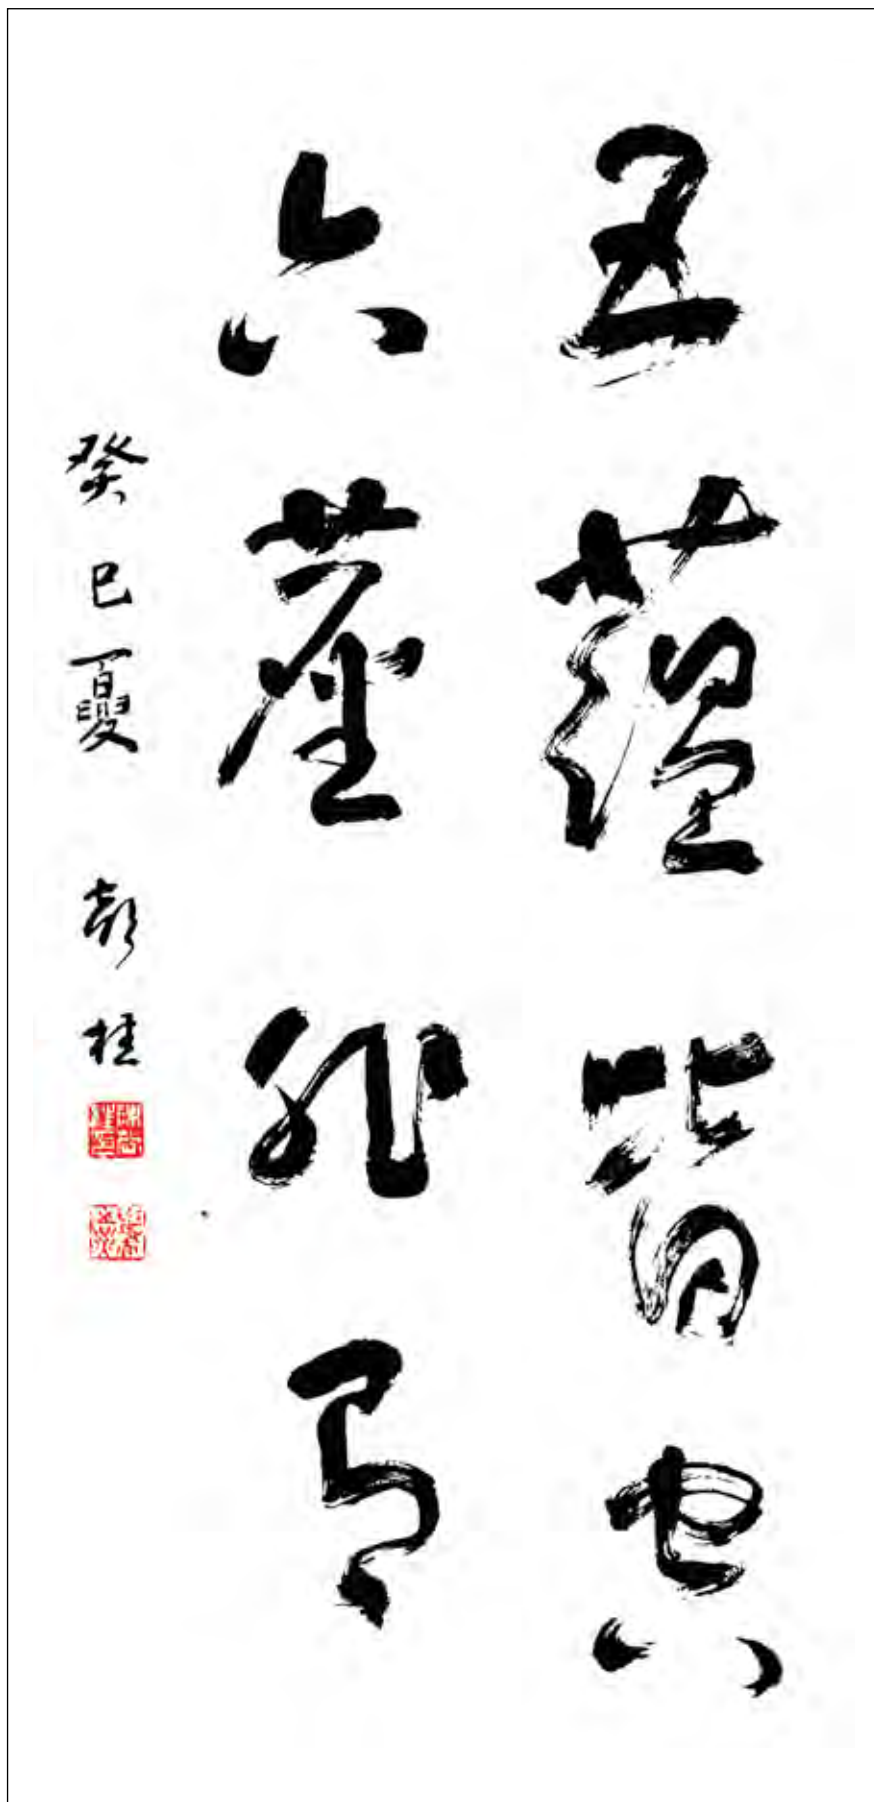 五蘊皆
六塵非有
癸巳夏 彭桂